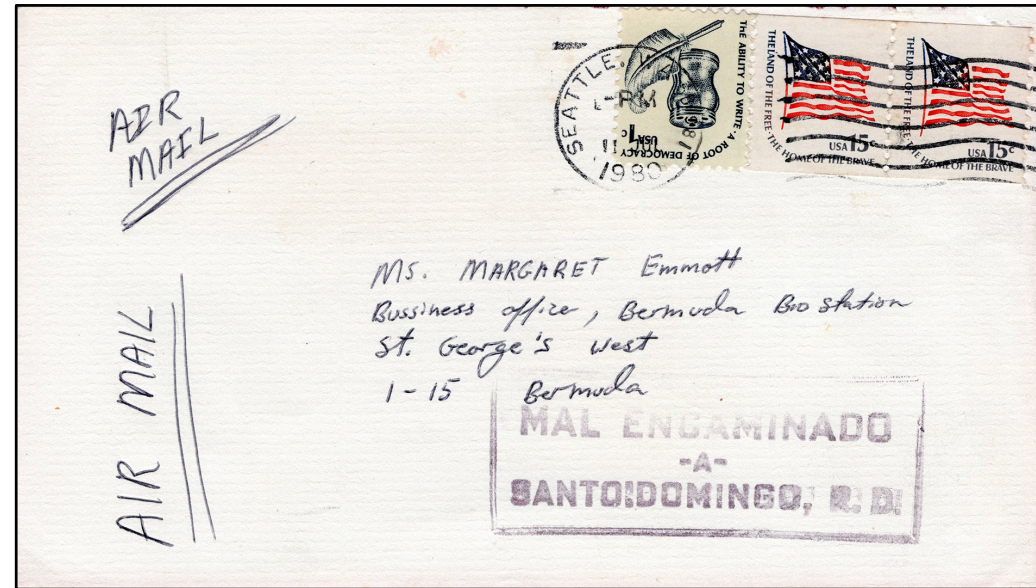 AIR
MAIL
AIR MAIL
SEATTLE, WA
PM
11 JUL
1980
THE ABILITY TO WRITE · A ROOT OF DEMOCRACY
USA 1c
THE LAND OF THE FREE · THE HOME OF THE BRAVE
USA 15c
THE LAND OF THE FREE · THE HOME OF THE BRAVE
USA 15c
MS. MARGARET Emmott
Bussiness office, Bermuda Bio Station
St. George's West
1-15 Bermuda
MAL ENCAMINADO
-A-
SANTO DOMINGO, R. D.